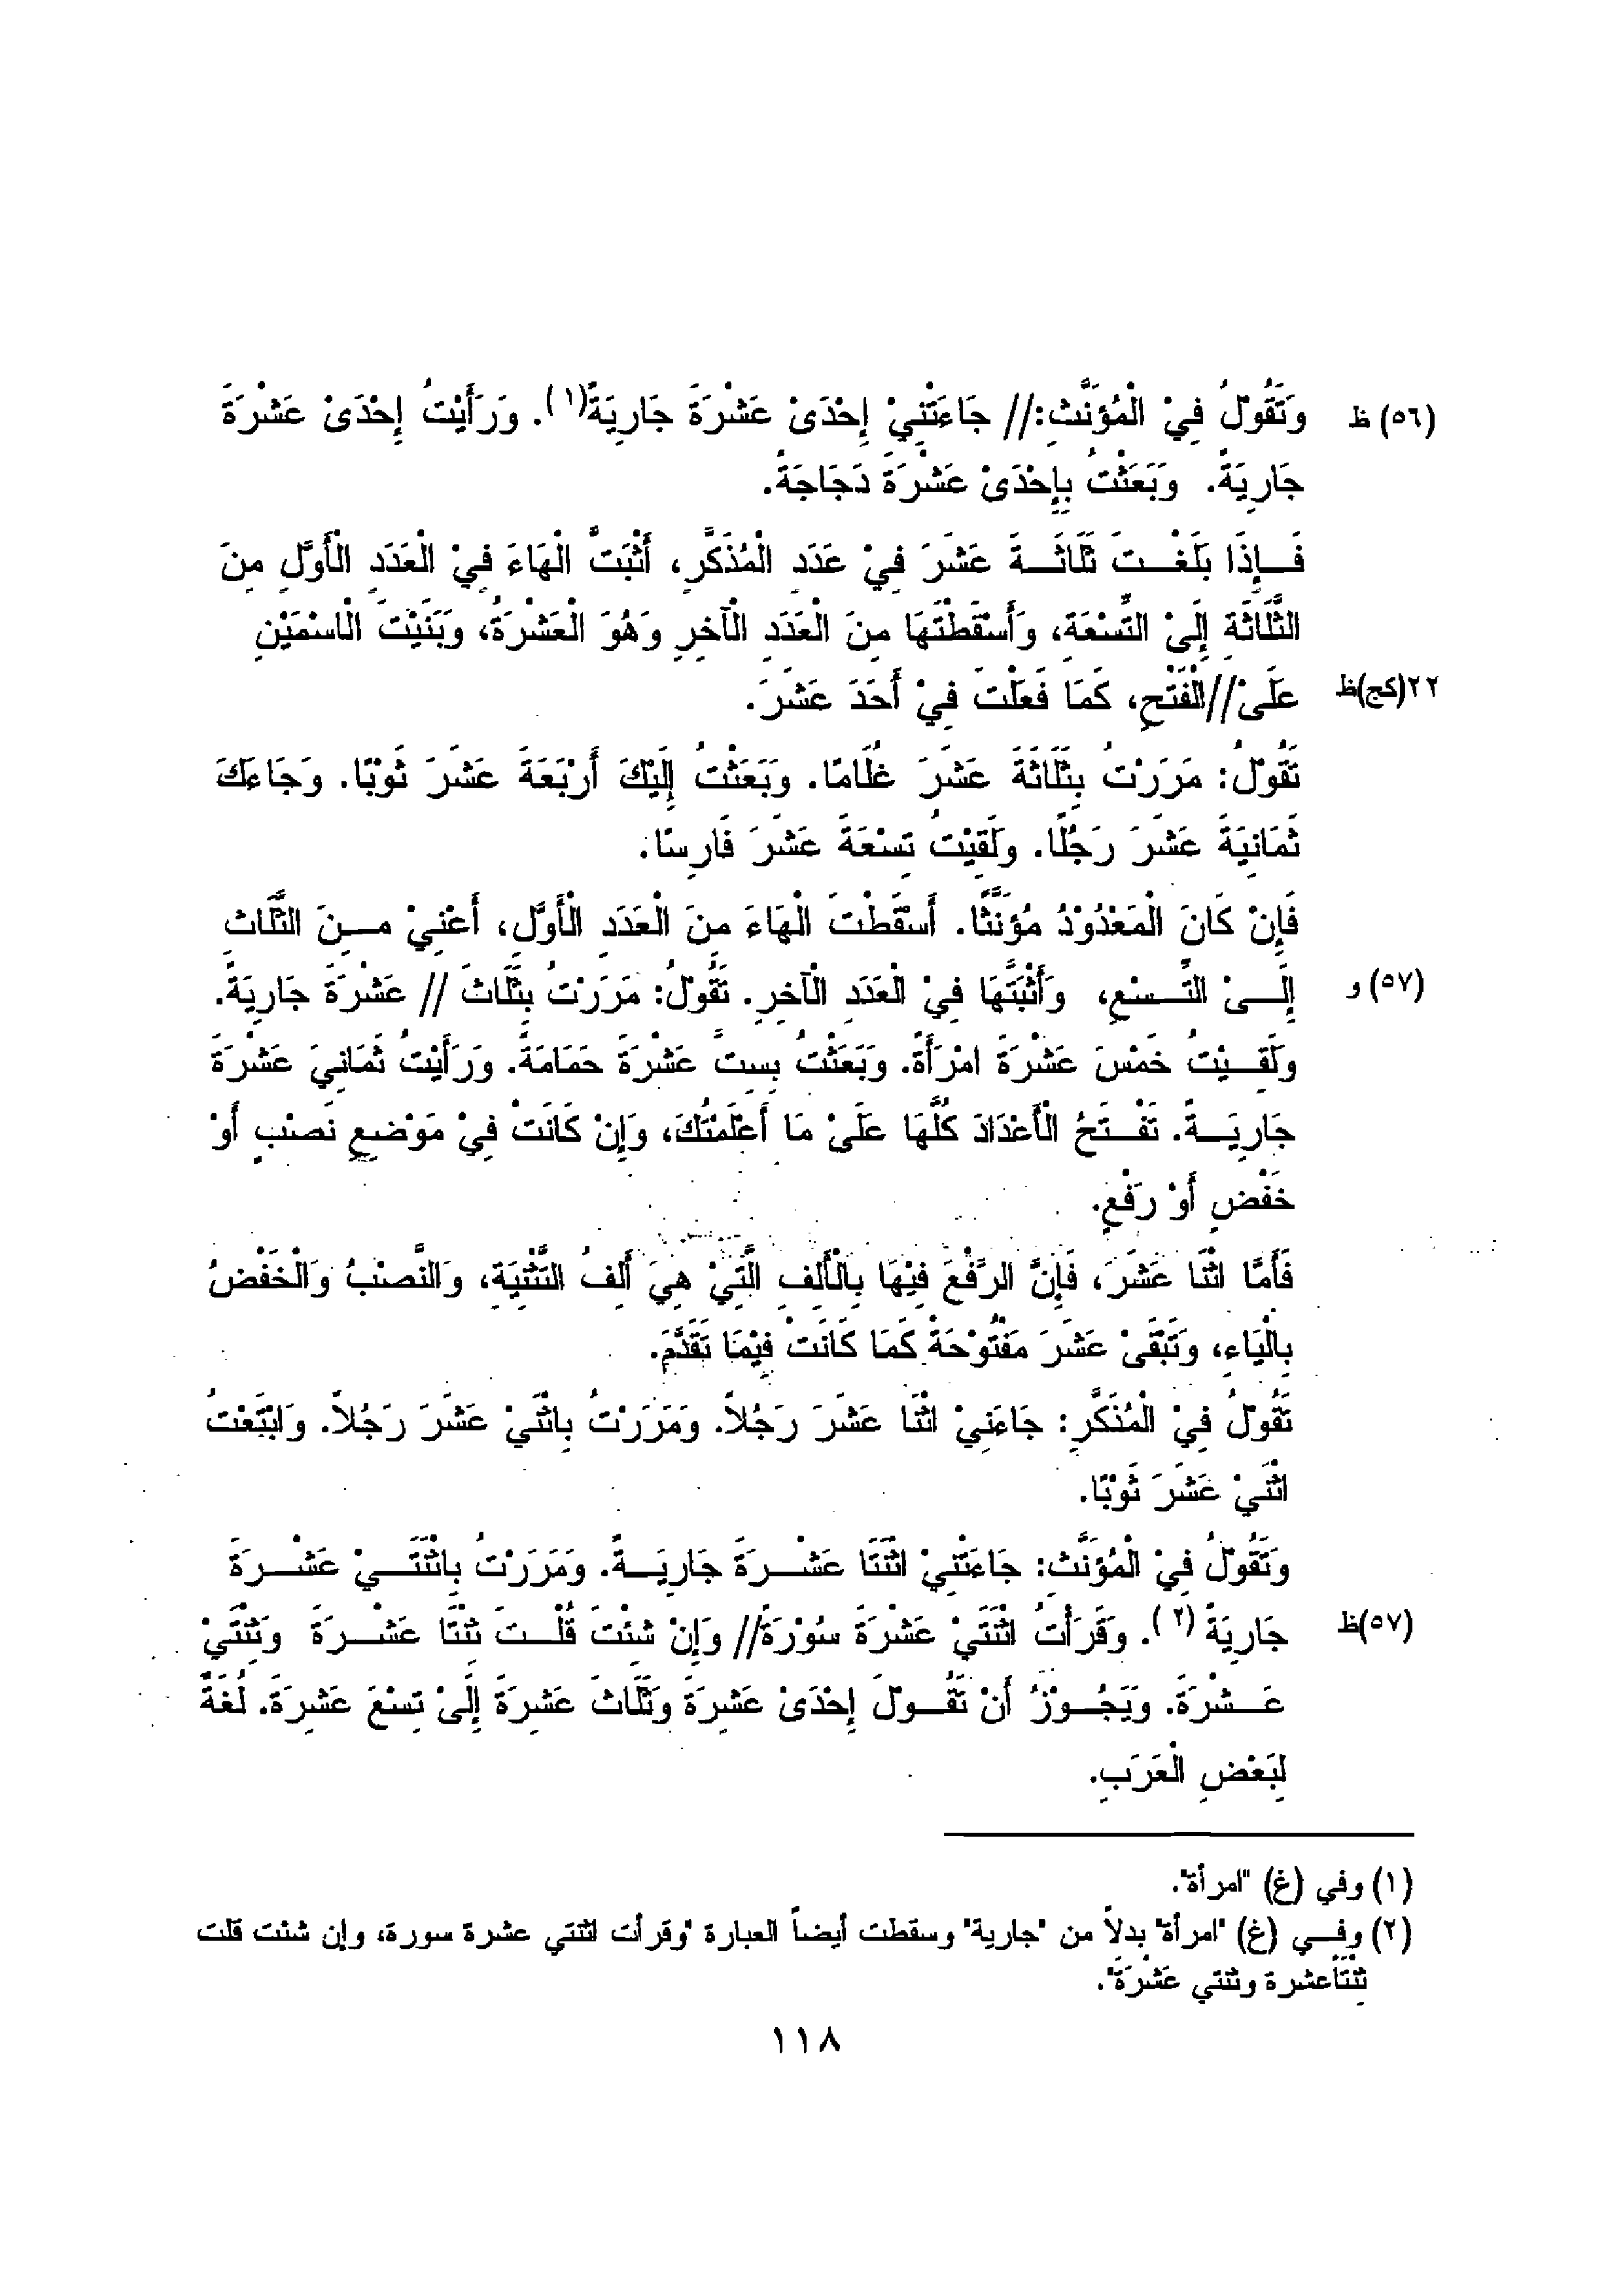 (٥٦) ظ وَتَقُولُ فِيْ الْمُؤَنَّثِ:// جَاءَتْنِيْ إِحْدَىْ عَشْرَةَ جَارِيَةً(١). وَرَأَيْتُ إِحْدَىْ عَشْرَةَ
جَارِيَةً. وَبَعَثْتُ بِإِحْدَىْ عَشْرَةَ دَجَاجَةً.
فَـإِذَا بَلَغْـتَ ثَلَاثَـةَ عَشَرَ فِيْ عَدَدِ الْمُذَكَّرِ، أَثْبَتَّ الْهَاءَ فِيْ الْعَدَدِ الْأَوَّلِ مِنَ
الثَّلَاثَةِ إِلَىْ التِّسْعَةِ، وَأَسْقَطْتَهَا مِنَ الْعَدَدِ الْآخِرِ وَهُوَ الْعَشْرَةُ، وَبَنَيْتَ الْاسْمَيْنِ
٢٢(كج)ظ عَلَىْ//الْفَتْحِ، كَمَا فَعَلْتَ فِيْ أَحَدَ عَشَرَ.
تَقُولُ: مَرَرْتُ بِثَلَاثَةَ عَشَرَ غُلَامًا. وَبَعَثْتُ إِلَيْكَ أَرْبَعَةَ عَشَرَ ثَوْبًا. وَجَاءَكَ
ثَمَانِيَةَ عَشَرَ رَجُلًا. وَلَقِيْتُ تِسْعَةَ عَشَرَ فَارِسًا.
فَإِنْ كَانَ الْمَعْدُوْدُ مُؤَنَّثًا. أَسْقَطْتَ الْهَاءَ مِنَ الْعَدَدِ الْأَوَّلِ، أَعْنِيْ مِـنَ الثَّلَاثِ
(٥٧) و إِلَـىْ التِّـسْعِ، وَأَثْبَتَّهَا فِيْ الْعَدَدِ الْآخِرِ. تَقُولُ: مَرَرْتُ بِثَلَاثَ // عَشْرَةَ جَارِيَةً.
وَلَقِـيْتُ خَمْسَ عَشْرَةَ امْرَأَةً. وَبَعَثْتُ بِسِتَّ عَشْرَةَ حَمَامَةً. وَرَأَيْتُ ثَمَانِيَ عَشْرَةَ
جَارِيَـةً. تَفْـتَحُ الْأَعْدَادَ كُلَّهَا عَلَىْ مَا أَعْلَمْتُكَ، وَإِنْ كَانَتْ فِيْ مَوْضِعِ نَصْبٍ أَوْ
خَفْضٍ أَوْ رَفْعٍ.
فَأَمَّا اثْنَا عَشَرَ، فَإِنَّ الرَّفْعَ فِيْهَا بِالْأَلِفِ الَّتِيْ هِيَ أَلِفُ التَّثْنِيَةِ، وَالنَّصْبُ وَالْخَفْضُ
بِالْيَاءِ، وَتَبْقَىْ عَشَرَ مَفْتُوْحَةً كَمَا كَانَتْ فِيْمَا تَقَدَّمَ.
تَقُولُ فِيْ الْمُذَكَّرِ: جَاءَنِيْ اثْنَا عَشَرَ رَجُلاً. وَمَرَرْتُ بِاثْنَيْ عَشَرَ رَجُلاً. وَابْتَعْتُ
اثْنَيْ عَشَرَ ثَوْبًا.
وَتَقُولُ فِيْ الْمُؤَنَّثِ: جَاءَتْنِيْ اثْنَتَا عَشْـرَةَ جَارِيَـةً. وَمَرَرْتُ بِاثْنَتَـيْ عَشْـرَةَ
(٥٧)ظ جَارِيَةً (٢). وَقَرَأْتُ اثْنَتَيْ عَشْرَةَ سُوْرَةً// وَإِنْ شِئْتَ قُلْـتَ ثِنْتَا عَشْـرَةَ وَثِنْتَيْ
عَـشْرَةَ. وَيَجُـوْزُ أَنْ تَقُـوْلَ إِحْدَىْ عَشِرَةَ وَثَلَاثَ عَشِرَةَ إِلَىْ تِسْعَ عَشِرَةَ. لُغَةٌ
لِبَعْضِ الْعَرَبِ.
(١) وفي (غ) "امرأة".
(٢) وفـي (غ) "امرأة" بدلاً من "جارية" وسقطت أيضاً العبارة "وقرأت اثنتي عشرة سورة، وإن شئت قلت
ثِنْتَاعشرة وثنتي عَشْرَةَ".
١١٨